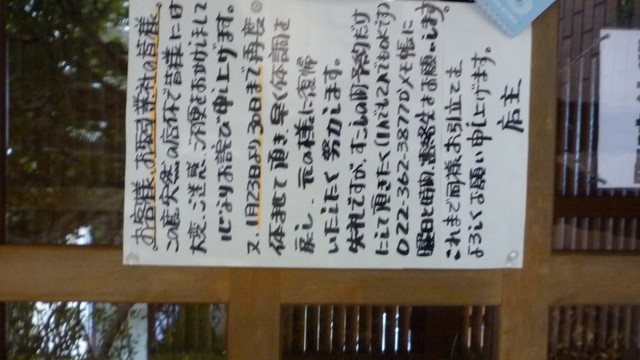 お客様、お取引業社の皆様、
この度、突然の店休で皆様には
大変、ご迷惑、ご不便をおかけしまして
心よりお詫び申し上げます。
又、11月23日より30日まで再度
体ませて頂き、早く体調を
戻し、元の様に復帰
いたしたく努力します。
失礼ですが、すこしの間予約だけ
にして頂きたく(1人でも2人でもOKです)
022-362-3877のメモ帳に
曜日と時間、電話をお願いします。
これまで同様お引立てを
よろしくお願い申し上げます。
店主